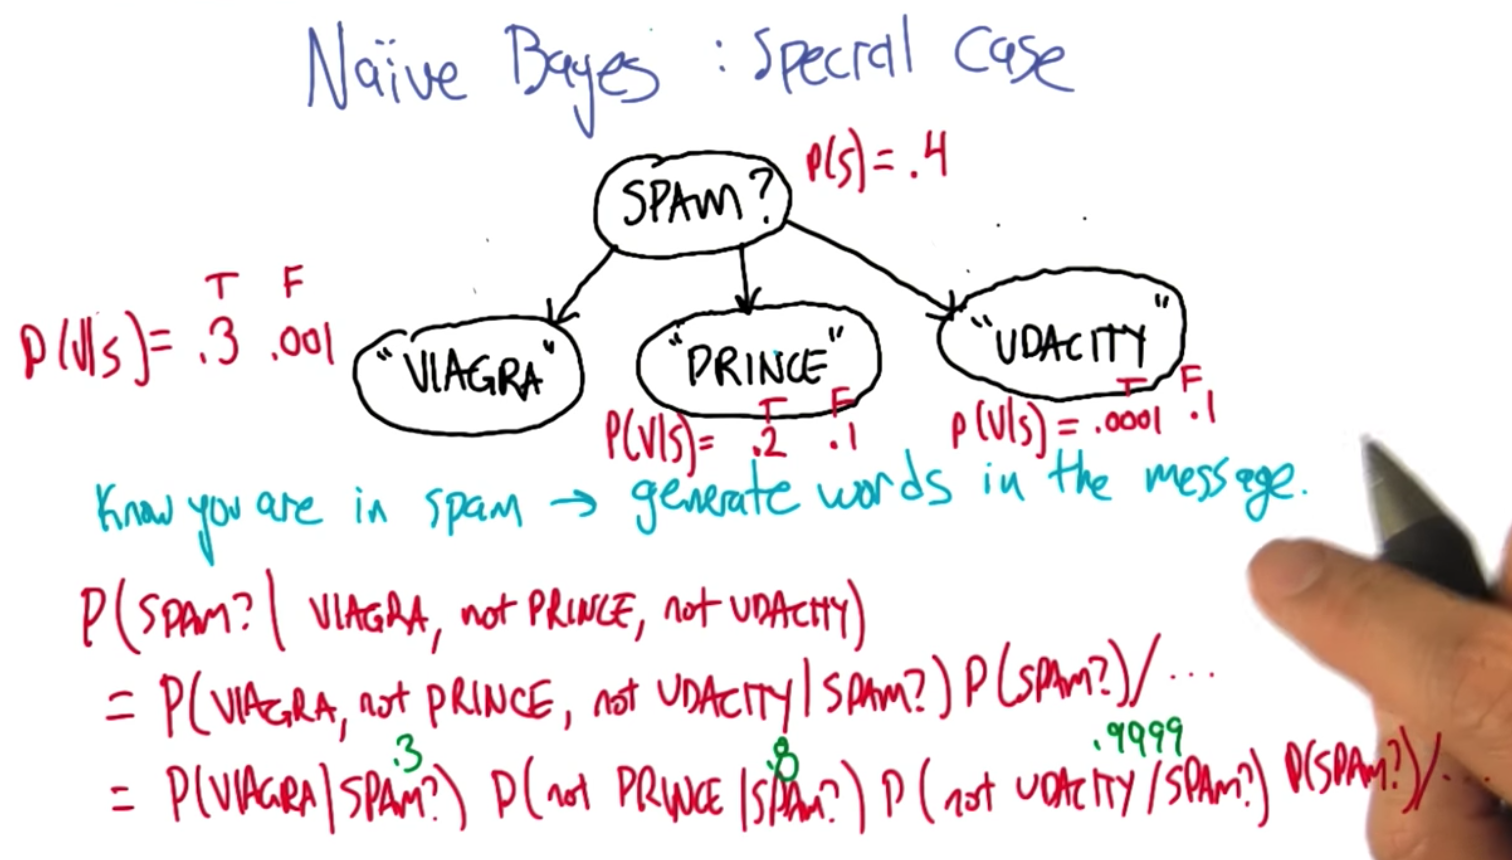 Naïve Bayes : Special Case
SPAM? P(S) = .4
T F
P(V|S) = .3 .001
"VIAGRA" "PRINCE" "UDACITY"
T F
P(V|S) = .2 .1
T F
P(V|S) = .0001 .1
Know you are in spam → generate words in the message.
P(SPAM? | VIAGRA, not PRINCE, not UDACITY)
= P(VIAGRA, not PRINCE, not UDACITY | SPAM?) P(SPAM?)/...
.3 .8 .9999
= P(VIAGRA|SPAM?) P(not PRINCE|SPAM?) P(not UDACITY/SPAM?) P(SPAM?)/...